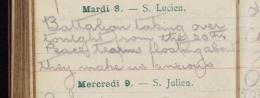 Mardi 8. — S. Lucien.
Battalion taking over
tonight from the 20th
Peace terms floating about
they make us anxious
Mercredi 9. — S. Julien.